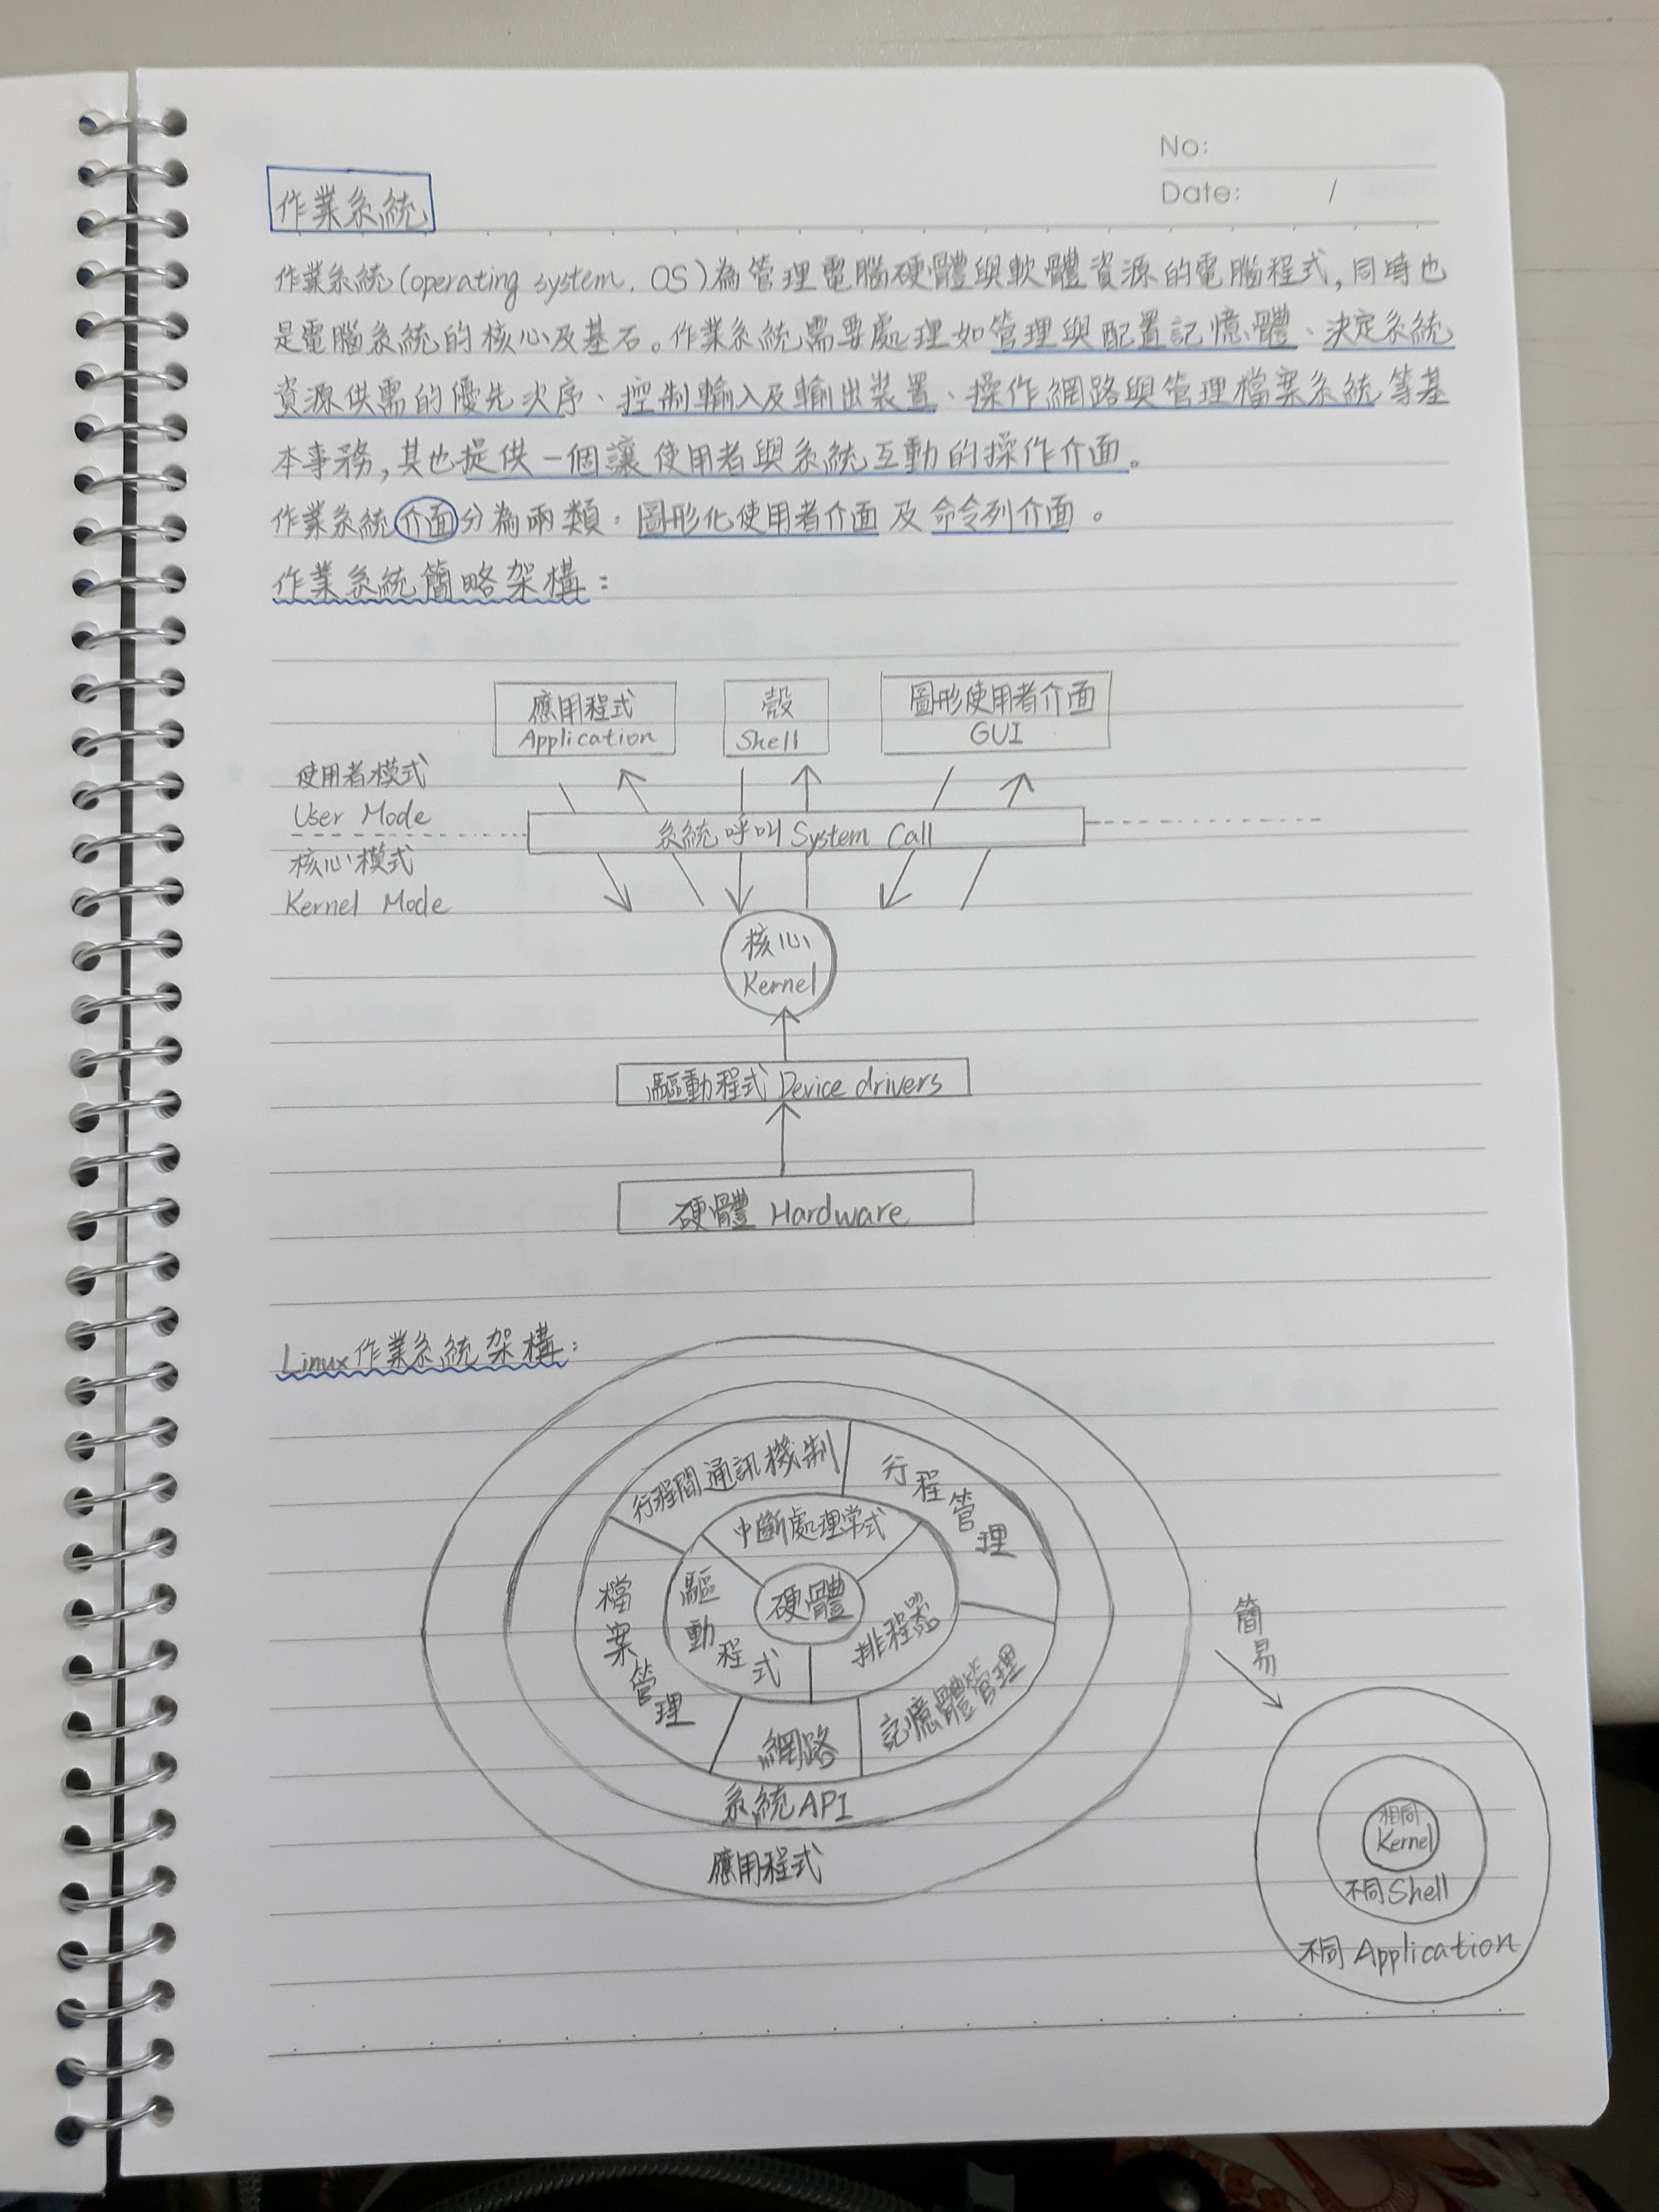 No:
Date: /
作業系統
作業系統(operating system, OS)為管理電腦硬體與軟體資源的電腦程式,同時也
是電腦系統的核心及基石。作業系統需要處理如管理與配置記憶體、決定系統
資源供需的優先次序、控制輸入及輸出裝置、操作網路與管理檔案系統等基
本事務,其也提供一個讓使用者與系統互動的操作介面。
作業系統介面分為兩類,圖形化使用者介面及命令列介面。
作業系統簡略架構:
應用程式
Application
殼
Shell
圖形使用者介面
GUI
使用者模式
User Mode
系統呼叫 System Call
核心模式
Kernel Mode
核心
Kernel
驅動程式 Device drivers
硬體 Hardware
Linux作業系統架構:
行程間通訊機制
行程管理
中斷處理常式
硬體
驅動程式
排程器
檔案管理
記憶體管理
網路
系統API
應用程式
簡易
相同
Kernel
不同Shell
不同Application